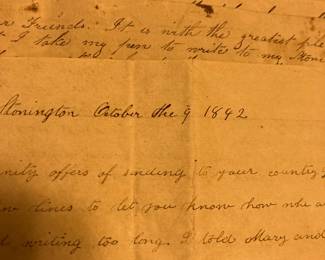 r Friends. It is with the greatest ple
t I take my pen to write to my Stoni
Stonington October the 9 1842
nity offers of sending to your country
w lines to let you know how we a
d writing too long. I told Mary and